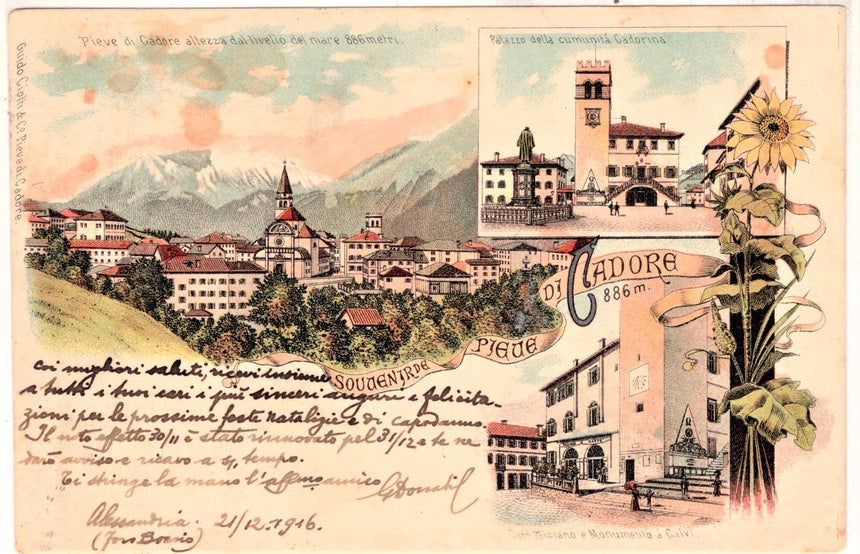 Pieve di Cadore altezza dal livello del mare 886 metri.
Palazzo della cumunitá Cadorina
Guido Ciotti & Co Pieve di Cadore
SOUVENIR DE PIEVE DI CADORE
886 m.
coi migliori saluti, ricevi insieme
a tutti i tuoi cari i più sinceri auguri e felicita-
zioni per le prossime feste natalizie e di capodanno.
Il noto effetto 30/11 è stato rinnovato pel 31/12 e te ne
darò avviso e ricavo a tempo.
Ti stringe la mano l'aff amico
Alessandria. 21/12.1916.
Tiziano e Monumento a Calvi.